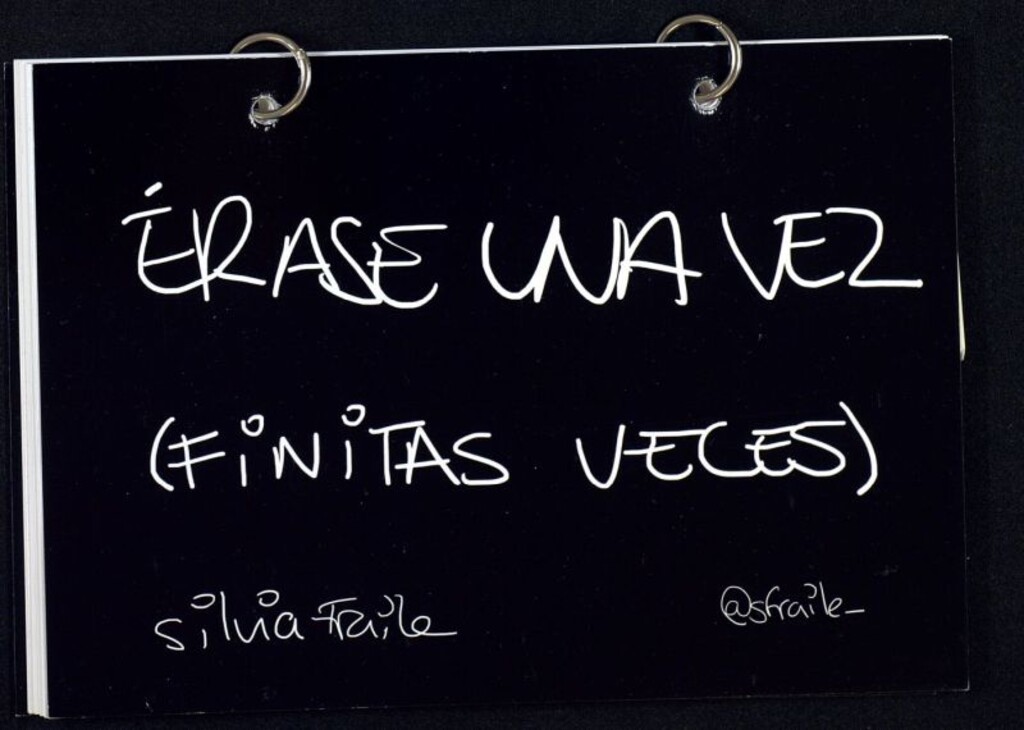 ÉRASE UNA VEZ
(FiNiTAS VECES)
silvia Fraile @sfraile_